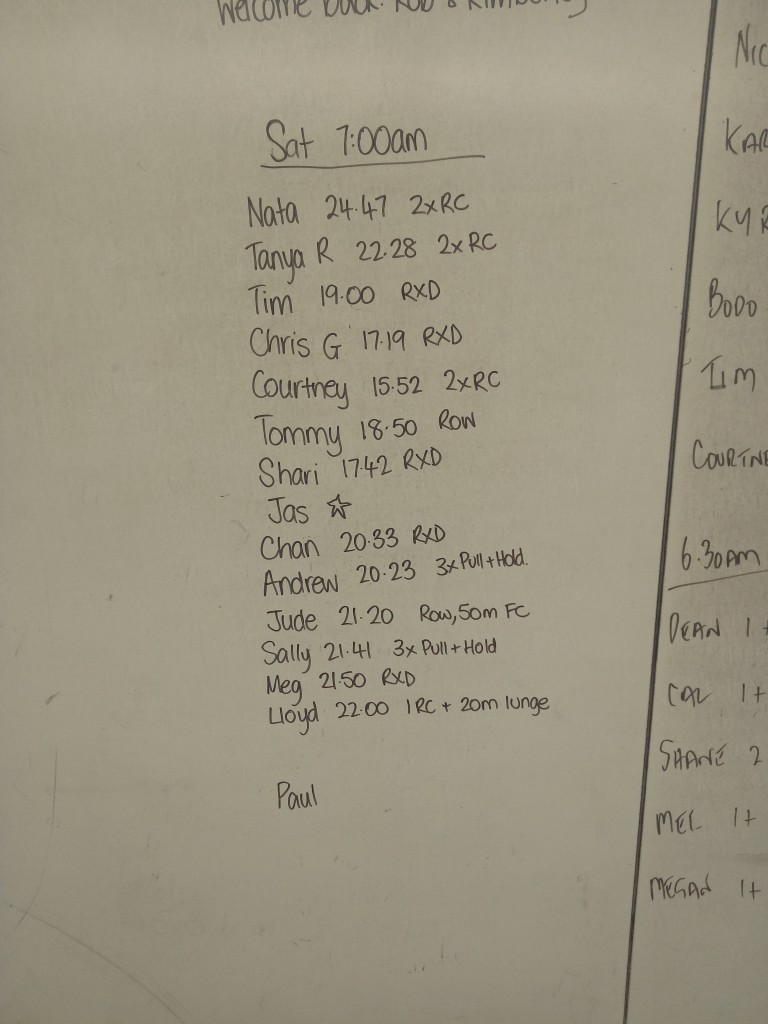 Welcome back Rob & Kimberley
Sat 7:00am
Nata 24.47 2xRC
Tanya R 22.28 2xRC
Tim 19.00 RXD
Chris G 17.19 RXD
Courtney 15.52 2xRC
Tommy 18.50 Row
Shari 17.42 RXD
Jas ☆
Chan 20.33 RXD
Andrew 20.23 3xPull+Hold.
Jude 21.20 Row, 50m FC
Sally 21.41 3x Pull+Hold
Meg 21.50 RXD
Lloyd 22.00 1RC + 20m lunge
Paul
NIC
KAR
KYR
BODO
TIM
COURTNE
6.30AM
DEAN 1+
CAL 1+
SHANE 2
MEL 1+
MEGAN 1+